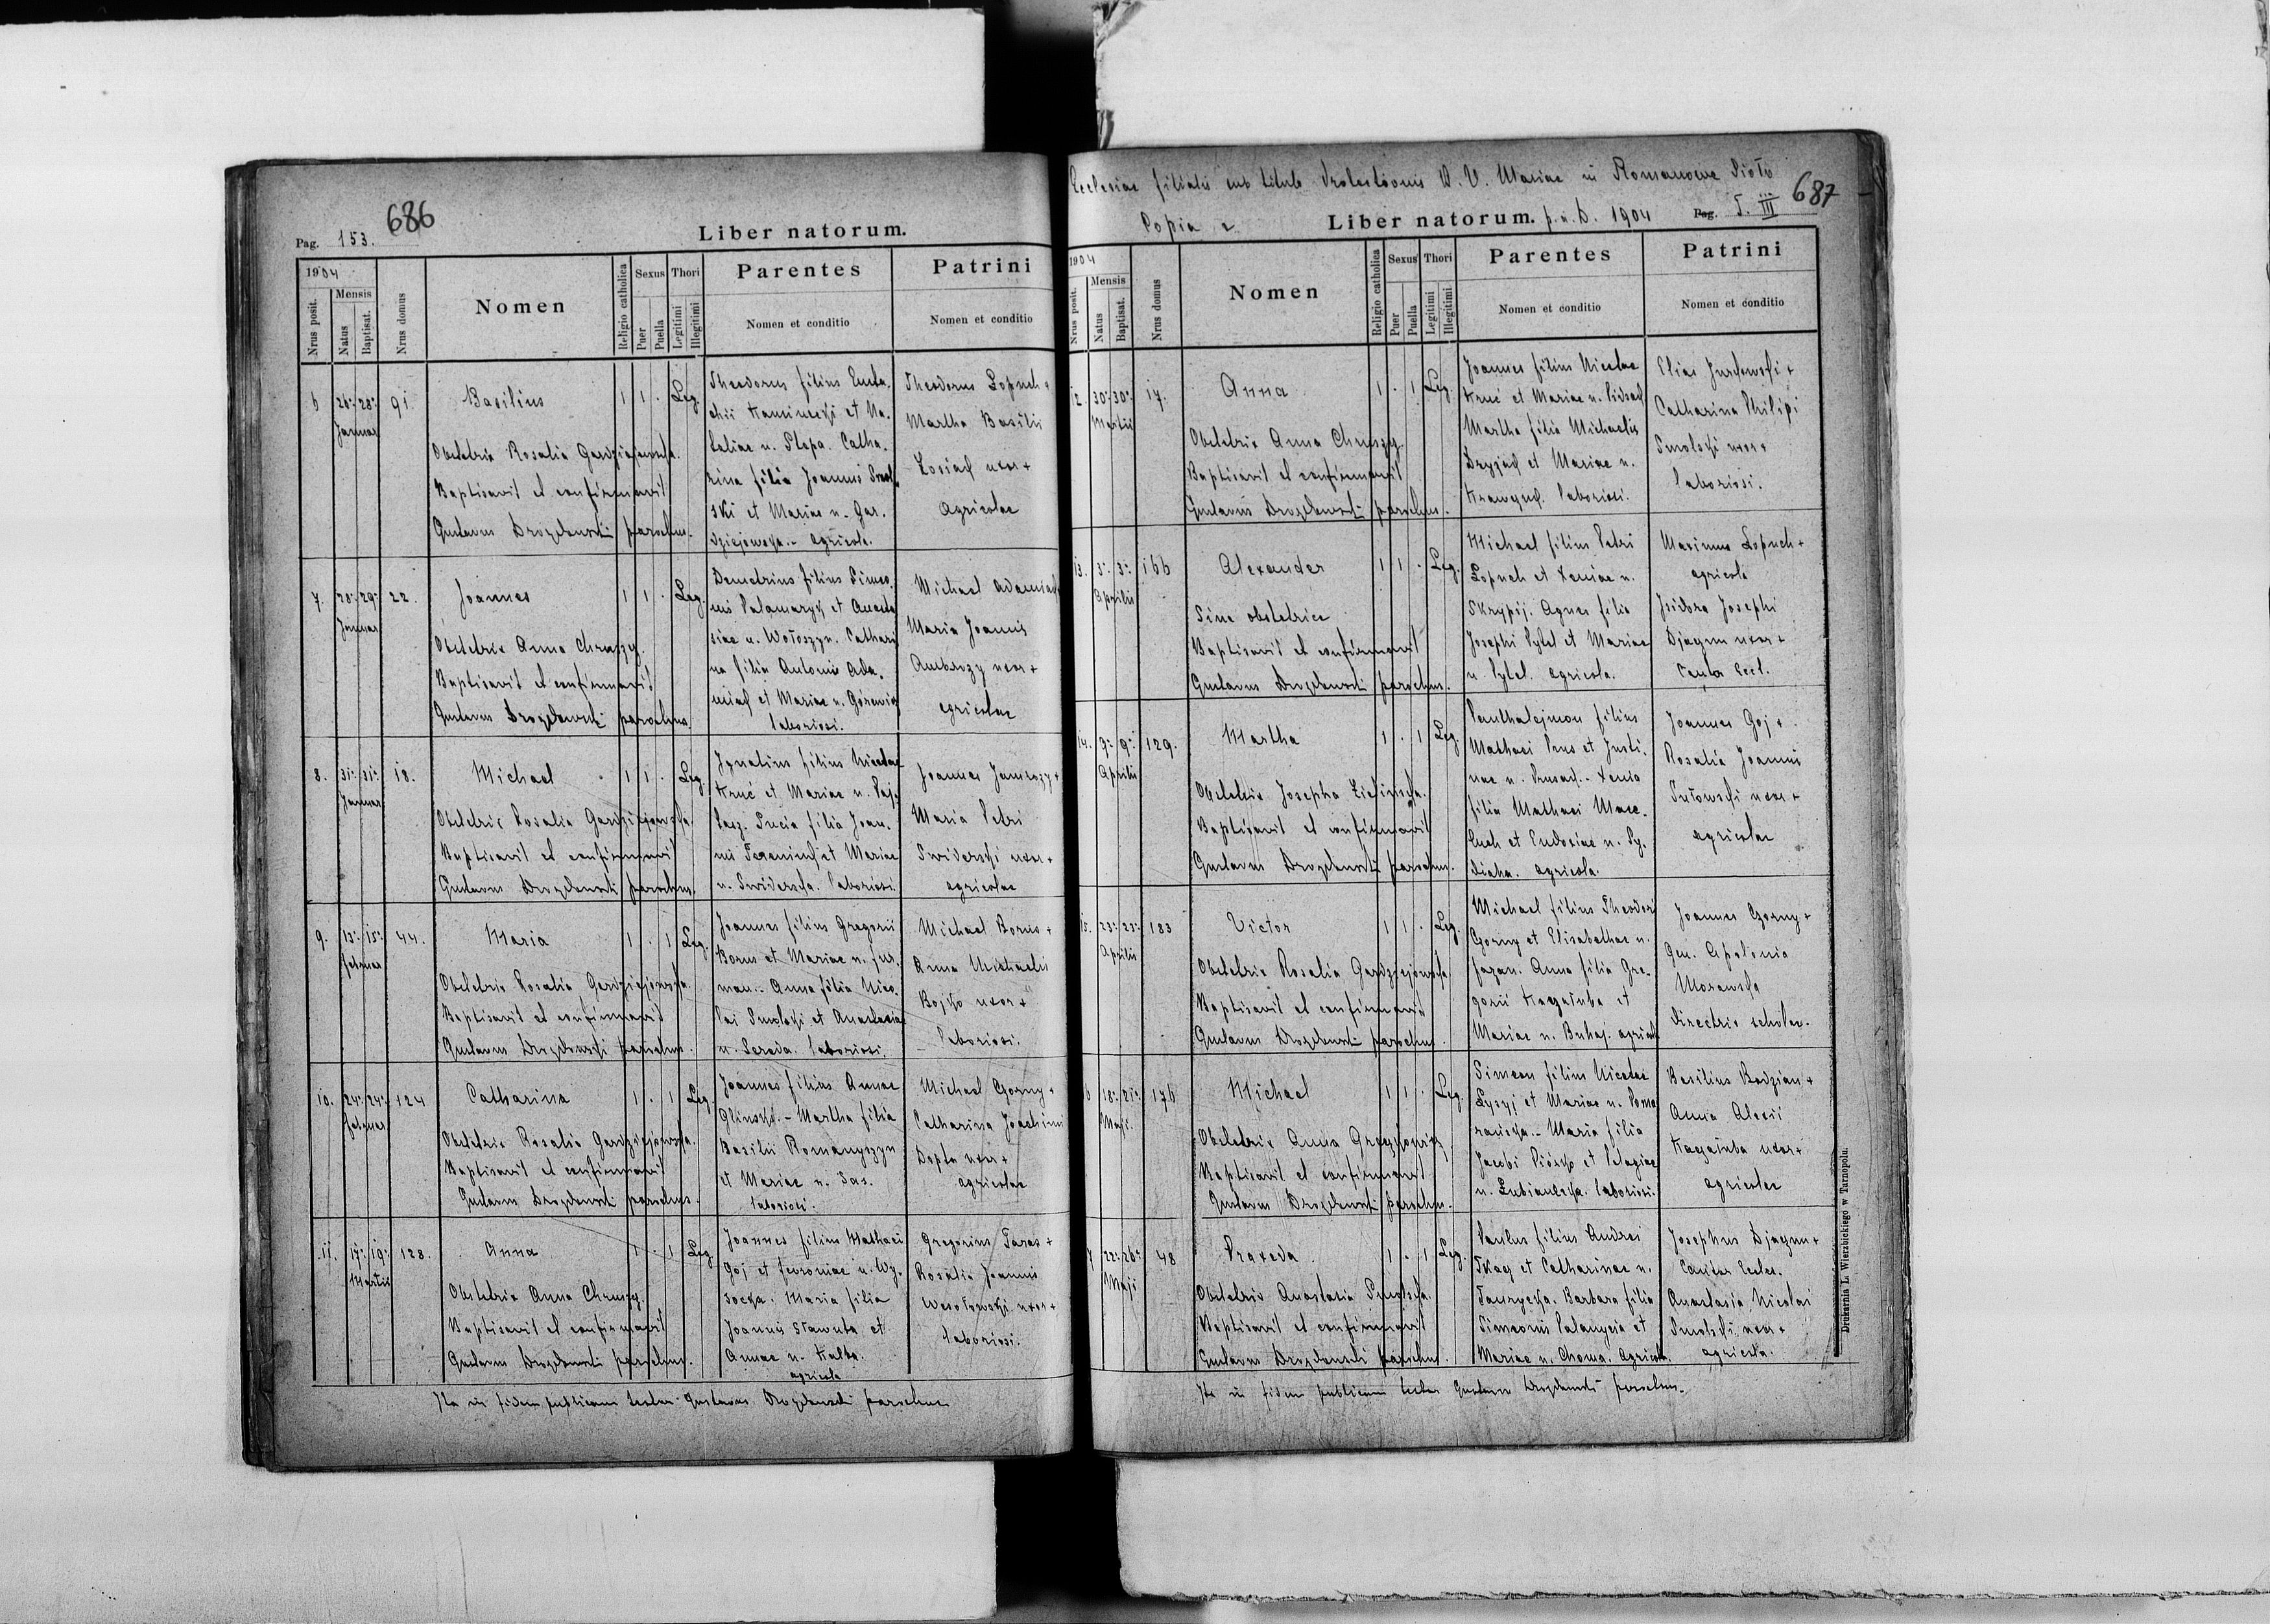 686
Pag. 153.
Liber natorum.
1904
Nrus posit.
Mensis
Natus
Baptisat.
Nrus domus
Nomen
Religio catholica
Sexus
Puer
Puella
Thori
Legitimi
Illegitimi
Parentes
Nomen et conditio
Patrini
Nomen et conditio
6 26. 28. 91. Basilius 1 1 . Leg.
Januar
Obstetrix Rosalia
Baptisavit et confirmavit
Gustavus Drozdowski parochus.
Theodorus filius Eusta-
chii Kaminecki et Na-
taliae n. Stepa. Catha-
rina filia Joannis Smol-
ski et Mariae n. Gar-
agricolae.
Theodorus Łopuch +
Martha Basilii
Łosiak uxor +
agricolae
7. 28. 29. 22. Joannes 1 1 . Leg.
Januar
Obstetrix Anna Chruszcz.
Baptisavit et confirmavit
Gustavus Drozdowski parochus.
Demetrius filius Simeo-
nis Palamaryk et Anasta-
siae n. Wołoszyn. Cathari-
na filia Antonii Ada-
miak et Mariae n.
laboriosi.
Michael Adamiak
Maria Joannis
Ambrozy uxor +
agricolae
8. 31. 31. 18. Michael 1 1 . Leg.
Januar
Obstetrix Rosalia
Baptisavit et confirmavit
Gustavus Drozdowski parochus.
Ignatius filius Nicolae
Kruć et Mariae n.
filia Joan-
nis et Mariae
n. Swiderska. laboriosi.
Joannes
Maria Petri
Swiderski uxor +
agricolae
9. 15. 15. 44. Maria 1 . 1 Leg.
Februar
Obstetrix Rosalia
Baptisavit et confirmavit
Gustavus Drozdowski parochus.
Joannes filius Gregorii
Borus et Mariae n. Fur-
man. Anna filia Nico-
lai Smolski et Anastasiae
n. Sereda. laboriosi.
Michael Borus +
Anna Michaelis
Bojko uxor +
laboriosi.
10. 24. 24. 124 Catharina 1 . 1 Leg.
Februar
Obstetrix Rosalia
Baptisavit et confirmavit
Gustavus Drozdowski parochus.
Joannes filius Annae
Martha filia
Basilii Romanyszyn
et Mariae n. Sas.
laboriosi.
Michael Gorny +
Catharina Joachimi
uxor +
agricolae
11. 17. 19. 128. Anna 1 . 1 Leg.
Martii
Obstetrix Anna Chruszcz.
Baptisavit et confirmavit
Gustavus Drozdowski parochus.
Joannes filius Mathaei
Goj et Fevroniae n. Wy-
socka. Maria filia
Joannis Sławuta et
Annae n.
agricola
Gregorius Taras +
Rosalia Joannis
Wesołowski uxor +
laboriosi.
Ita in fidem publicam testor Gustavus Drozdowski parochus
Ecclesiae filialis sub titulo Protectionis B. V. Mariae in Romanowe Sioło
687
Copia
Liber natorum. p. a. D. 1904
Pag. T. III
1904
Nrus posit.
Mensis
Natus
Baptisat.
Nrus domus
Nomen
Religio catholica
Sexus
Puer
Puella
Thori
Legitimi
Illegitimi
Parentes
Nomen et conditio
Patrini
Nomen et conditio
12. 30. 30. 17. Anna 1 . 1 Leg.
Martii
Obstetrix Anna Chruszcz.
Baptisavit et confirmavit
Gustavus Drozdowski parochus.
Joannes filius Nicolae
Kruć et Mariae n.
Martha filia Michaelis
et Mariae n.
laboriosi.
Elias +
Catharina Philipi
Smolski uxor +
laboriosi.
13. 3. 3. 166 Alexander 1 1 . Leg.
Aprilis
Sine obstetrice
Baptisavit et confirmavit
Gustavus Drozdowski parochus.
Michael filius Petri
Łopuch et Xeniae n.
Skrypij. Agnes filia
Josephi Pytel et Mariae
n. Pytel. agricola.
Maximus Łopuch +
agricola
Isidora Josephi
Djaczun uxor +
14. 9. 9. 129. Martha 1 . 1 Leg.
Aprilis
Obstetrix Josepha Zielinska.
Baptisavit et confirmavit
Gustavus Drozdowski parochus.
Panthalejmon filius
Mathaei Prus et Justi-
nae n. Prusak. Xenia
filia Mathaei
et Eudoxiae n.
agricola.
Joannes Goj +
Rosalia Joannis
uxor +
agricolae
15. 23. 23. 183 Victor 1 1 . Leg.
Aprilis
Obstetrix Rosalia
Baptisavit et confirmavit
Gustavus Drozdowski parochus.
Michael filius Theodori
Gorny et Elisabethae n.
Anna filia Gre-
gorii et
Mariae n. Buhaj. agricola
Joannes Gorny +
Gen. Apolonia
Morawska
directrix scholae.
18. 21. 176 Michael 1 1 . Leg.
Maji
Obstetrix Anna
Baptisavit et confirmavit
Gustavus Drozdowski parochus.
Simeon filius Nicolae
Łysyj et Mariae n.
Maria filia
Jacobi et Pelagiae
n. laboriosi.
Basilius Bodzian +
Anna Alexii
uxor +
agricolae
22. 26. 48 Praxeda 1 . 1 Leg.
Maji
Obstetrix Anastasia Smolska.
Baptisavit et confirmavit
Gustavus Drozdowski parochus.
Paulus filius Andrei
Tkacz et Catharinae n.
Barbara filia
Simeonis et
Mariae n. Choma. agricola.
Josephus Djaczun +
Cantor Eccles.
Anastasia Nicolai
Smolski uxor +
agricola.
Ita in fidem publicam testor Gustavus Drozdowski parochus.
Drukarnia L. Wierzbickiego w Tarnopolu.